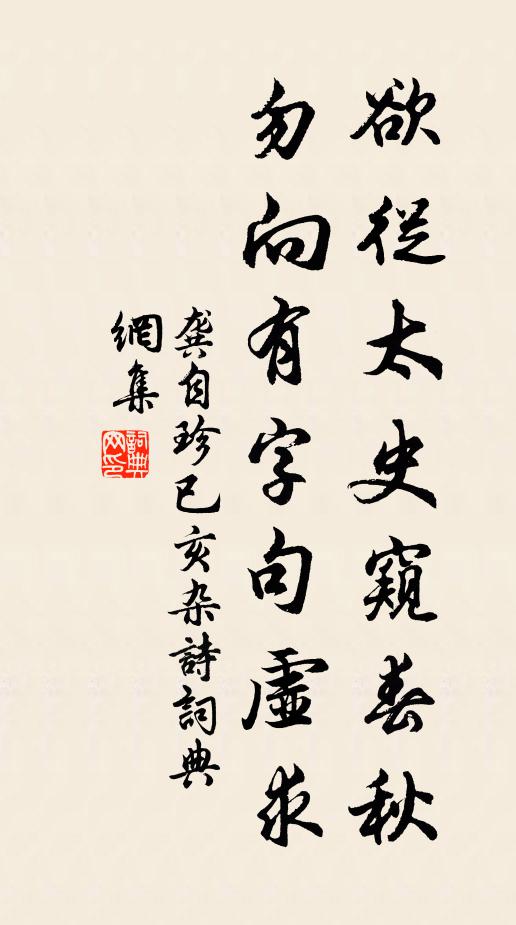 欲從太史窺春秋
勿向有字句虛求
龔自珍己亥杂詩詞典
網集
詞典网印